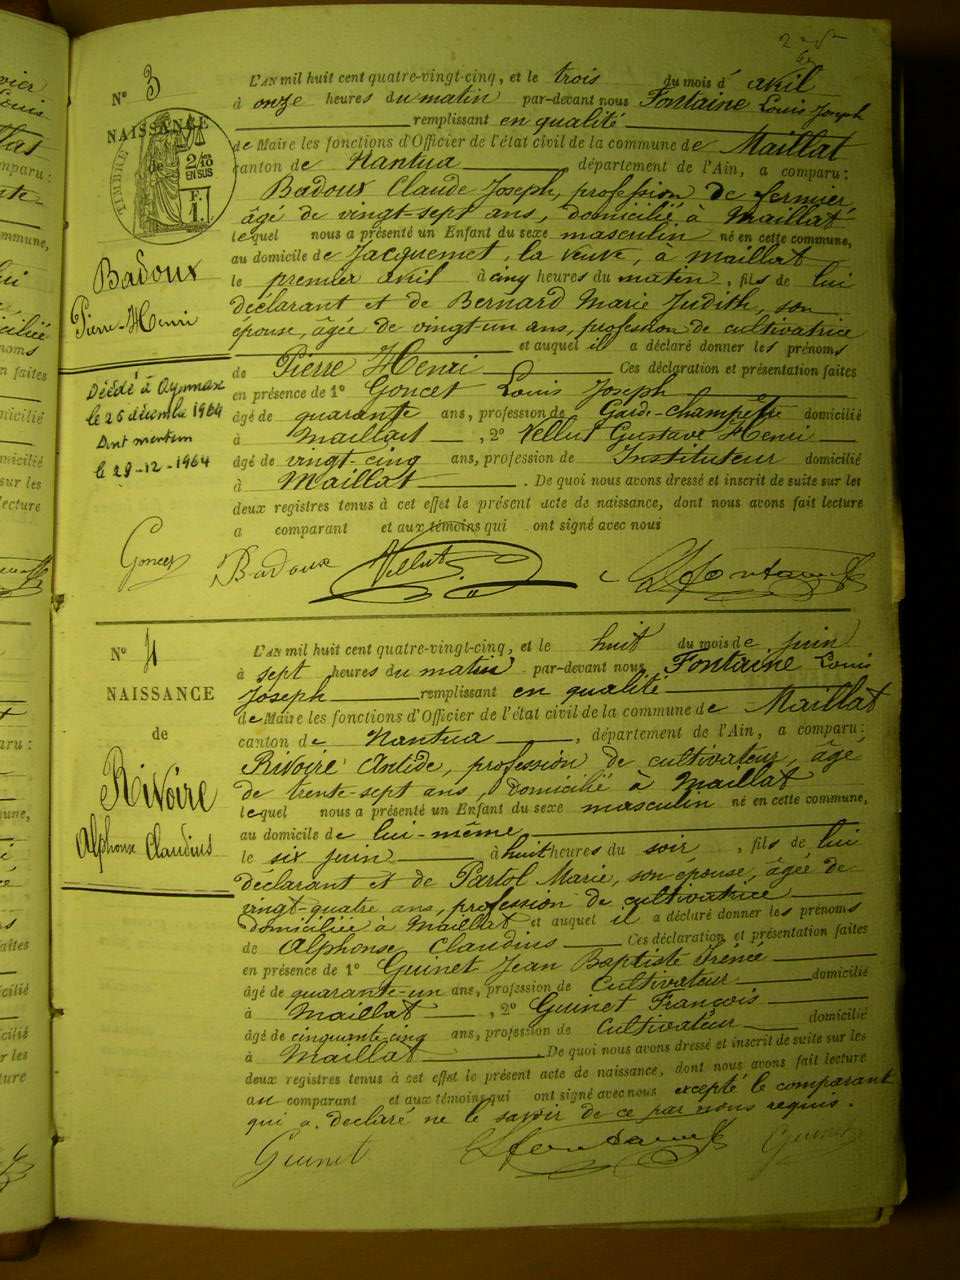 N° 3
NAISSANCE
de
TIMBRE
2/10 EN SUS
F. 1.
Badoux
Pierre-Henri
Décédé à Oyonnax
le 26 décembre 1964
Dont mention
le 29-12-1964
L'AN mil huit cent quatre-vingt-cinq, et le trois du mois d'avril
à onze heures du matin par-devant nous Fontaine Louis Joseph
remplissant en qualité
de Maire les fonctions d'Officier de l'état civil de la commune de Maillat
canton de Nantua département de l'Ain, a comparu :
Badoux Claude Joseph, profession de fermier
âgé de vingt-sept ans, domicilié à Maillat
lequel nous a présenté un Enfant du sexe masculin né en cette commune,
au domicile de Jacquemet, la veuve, à Maillat
le premier avril à cinq heures du matin, fils de lui
déclarant et de Bernard Marie Judith, son
épouse, âgée de vingt-un ans, profession de cultivatrice
et auquel il a déclaré donner les prénoms
de Pierre Henri Ces déclaration et présentation faites
en présence de 1° Goncet Louis Joseph
âgé de quarante ans, profession de Garde-champêtre domicilié
à Maillat, 2° Vellut Gustave Henri
âgé de vingt-cinq ans, profession de Instituteur domicilié
à Maillat. De quoi nous avons dressé et inscrit de suite sur les
deux registres tenus à cet effet le présent acte de naissance, dont nous avons fait lecture
a comparant et aux témoins qui ont signé avec nous
Goncet Badoux Vellut L Fontaine
N° 4
NAISSANCE
de
Rivoire
Alphonse Claudius
L'AN mil huit cent quatre-vingt-cinq, et le huit du mois de juin
à sept heures du matin par-devant nous Fontaine Louis
Joseph remplissant en qualité
de Maire les fonctions d'Officier de l'état civil de la commune de Maillat
canton de Nantua, département de l'Ain, a comparu :
Rivoire Antide, profession de cultivateur, âgé
de trente-sept ans, domicilié à Maillat
lequel nous a présenté un Enfant du sexe masculin né en cette commune,
au domicile de lui-même
le six juin à huit heures du soir, fils de lui
déclarant et de Partol Marie, son épouse, âgée de
vingt-quatre ans, profession de cultivatrice
domiciliée à Maillat et auquel il a déclaré donner les prénoms
de Alphonse Claudius Ces déclaration et présentation faites
en présence de 1° Guinet Jean Baptiste Irénée
âgé de quarante-un ans, profession de Cultivateur domicilié
à Maillat, 2° Guinet François
âgé de cinquante-cinq ans, profession de Cultivateur domicilié
à Maillat. De quoi nous avons dressé et inscrit de suite sur les
deux registres tenus à cet effet le présent acte de naissance, dont nous avons fait lecture
au comparant et aux témoins qui ont signé avec nous excepté le comparant
qui a déclaré ne le savoir de ce par nous requis.
Guinet L Fontaine Guinet